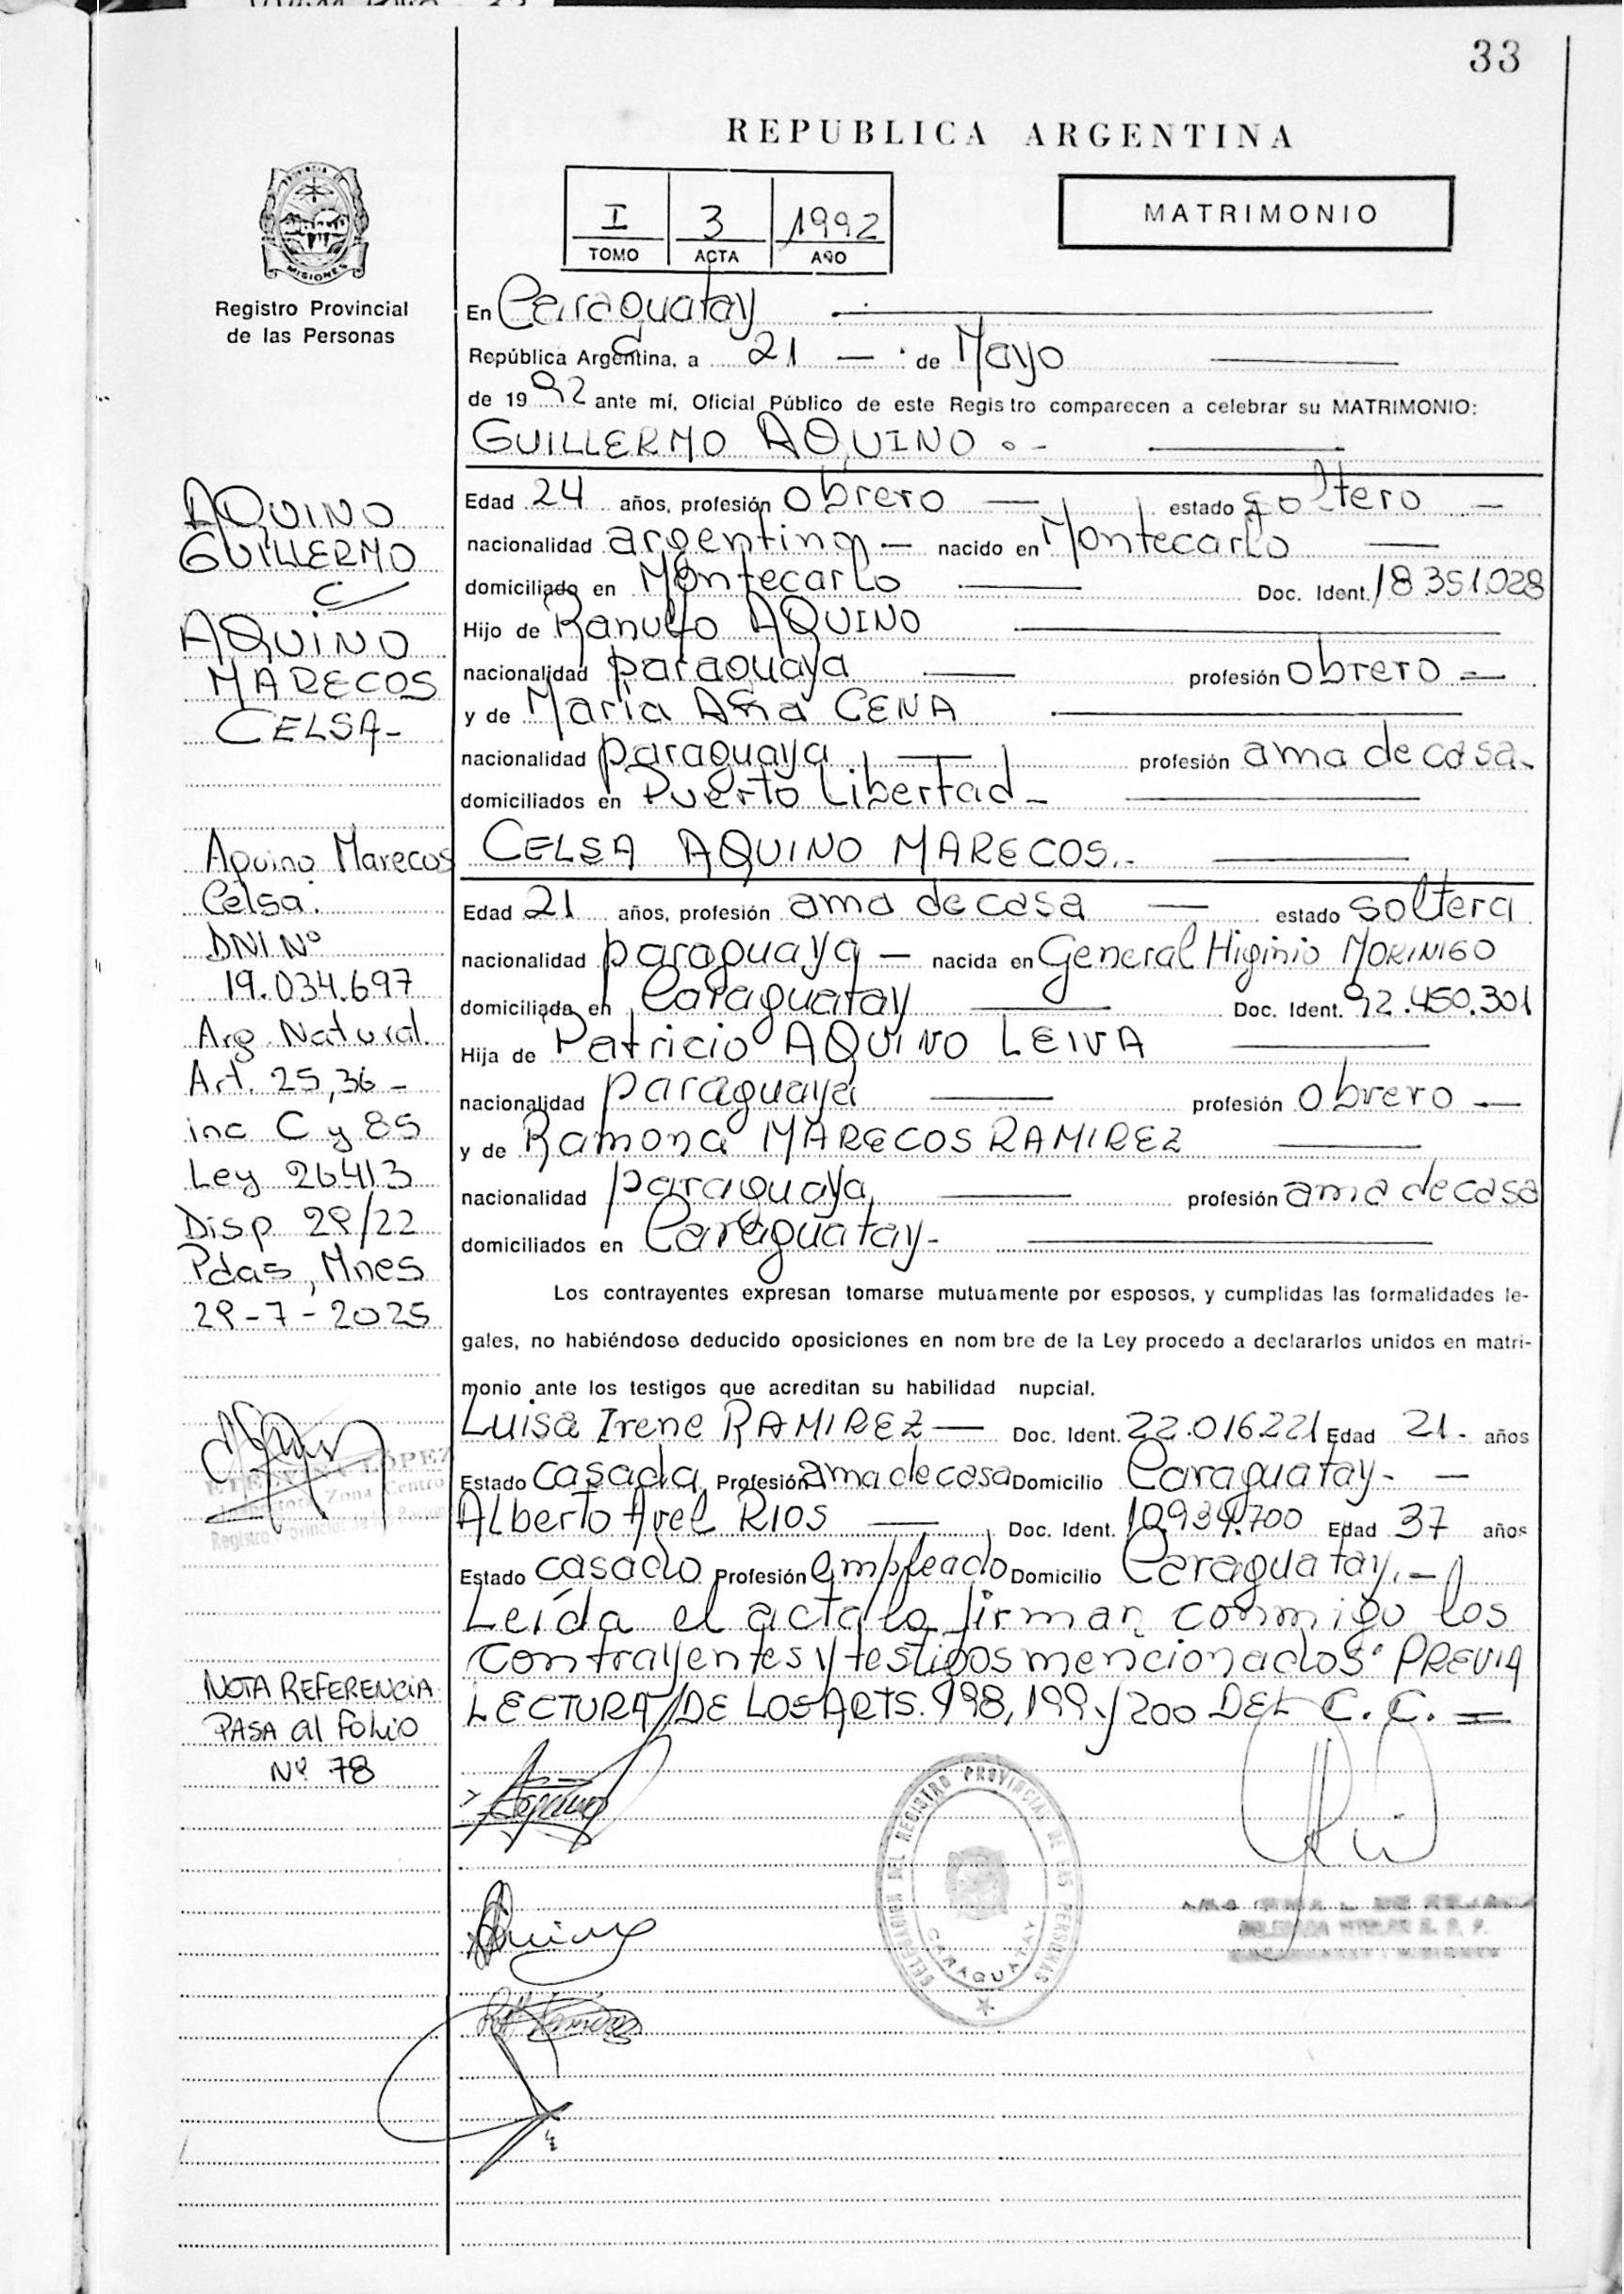 33
REPUBLICA ARGENTINA
I 3 1992
TOMO ACTA AÑO
MATRIMONIO
MISIONES
Registro Provincial
de las Personas
En Caraguatay
República Argentina, a 21 — de Mayo
de 1992 ante mí, Oficial Público de este Registro comparecen a celebrar su MATRIMONIO:
GUILLERMO AQUINO.-
Edad 24 años, profesión obrero — estado soltero —
nacionalidad argentina — nacido en Montecarlo —
domiciliado en Montecarlo — Doc. Ident. 18.351.028
Hijo de Ranulfo AQUINO
nacionalidad paraguaya — profesión obrero —
y de Maria Ana CENA
nacionalidad paraguaya — profesión ama de casa-
domiciliados en Puerto Libertad-
CELSA AQUINO MARECOS.-
Edad 21 años, profesión ama de casa — estado soltera
nacionalidad paraguaya — nacida en General Higinio MORINIGO
domiciliada en Caraguatay — Doc. Ident. 92.450.301
Hija de Patricio AQUINO LEIVA
nacionalidad paraguaya — profesión obrero —
y de Ramona MARECOS RAMIREZ
nacionalidad paraguaya — profesión ama de casa
domiciliados en Caraguatay-
Los contrayentes expresan tomarse mutuamente por esposos, y cumplidas las formalidades le-
gales, no habiéndose deducido oposiciones en nombre de la Ley procedo a declararlos unidos en matri-
monio ante los testigos que acreditan su habilidad nupcial.
Luisa Irene RAMIREZ — Doc. Ident. 22.016.221 Edad 21. años
Estado casada Profesión ama de casa Domicilio Caraguatay- —
Alberto Avel RIOS — Doc. Ident. 10.934.700 Edad 37 años
Estado casado Profesión empleado Domicilio Caraguatay.-
Leída el acta la firman conmigo los
contrayentes y testigos mencionados" PREVIA
LECTURA DE LOS ARTS. 198, 199 y 200 DEL C.C. =
DELEGACION DEL REGISTRO PROVINCIAL DE LAS PERSONAS
CARAGUATAY
AQUINO
GUILLERMO
c/
AQUINO
MARECOS
CELSA-
Aquino Marecos
Celsa.
DNI Nº
19.034.697
Arg. Natural.
Art. 25, 36 -
inc C y 85
Ley 26413
Disp 29/22
Pdas, Mnes
29-7-2025
LOPEZ
Zona Centro
NOTA REFERENCIA
PASA al folio
Nº 78